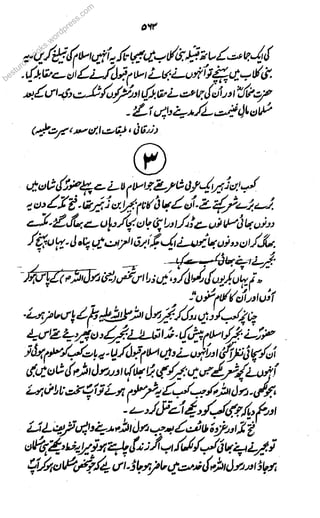 ۵۶۳
کی ایک جماعت کے ساتھ قبیلہ بنی کلاب میں بھیجا تاکہ یہ انہیں اسلام کی تبلیغ کریں۔ یہ
بنی کلاب میں پہنچے تو انہوں نے بجائے اسلام قبول کرنے کے ان سے مقابلہ کیا۔
حضرت ضحاکؓ اور ان کی جماعت نے مقابلہ کیا اور مشرکوں کو شکست دی، اس کے بعد
مسلمان مالِ غنیمت لے کر مدینے واپس آ گئے۔
(زرقانی، طبقات ابن سعد، سیرت حلبیہ)
۳
کعب ابن زہیر ایک عربی شاعر تھے جو اسلام لانے سے پہلے حضورؐ کی شان میں
برے برے شعر کہتے تھے۔ ان کے بھائی کا نام بجیر ابن زہیر تھا۔ فتح مکہ کے دن یہ
دونوں بھائی مسلمانوں سے ڈر کر اور اپنی جان بچا کر وہاں سے بھاگ گئے۔ مکے سے
بھاگ کر ان دونوں بھائیوں نے ایک جگہ ابرق العزاف میں پناہ لی۔ یہاں پہنچ کر
بجیر نے اپنے بھائی کعب سے کہا۔
"تم یہاں بکریوں کی رکھوالی کرو، میں ذرا اس شخص (یعنی رسول اللہؐ) کے پاس ہو کر
آؤں اور ان کا کلام سنوں"۔
چنانچہ کعب کو وہیں روک کر بجیر رسول اللہ صلی اللہ علیہ وسلم کے پاس حاضر ہوئے۔
حضورؐ نے بجیر کو اسلام پیش کیا۔ خدا تعالیٰ نے بجیر کے دن پھیر دیئے تھے اس لیے
ان کو سچائی نظر آ گئی اور انہوں نے وہیں اسلام قبول کر لیا۔ یہ بات کعب کو معلوم ہوئی تو
انہوں نے کچھ شعر لکھے جس میں بجیر کو بھی برا بھلا کہا اور رسول اللہؐ کی شان میں بھی
ہجو لکھی۔ رسول اللہؐ کو جب کعب کے یہ شعر معلوم ہوئے تو آپؐ سخت ناراض ہوئے
اور حکم دیا کہ جو بھی کعب کو دیکھے اسے قتل کر دے۔
فتح مکہ اور غزوۂ طائف کے بعد جب رسول اللہؐ مدینے واپس تشریف لے آئے
تو بجیر نے اپنے بھائی کعب کو لکھا کہ اب اگر زندگی چاہتے ہو تو میرا یہ خط دیکھتے ہی مسلمان
ہو جاؤ اور رسول اللہؐ کی خدمت میں حاضر ہو جاؤ۔ اس لیے کہ جو شخص مسلمان ہو کر آپؐ